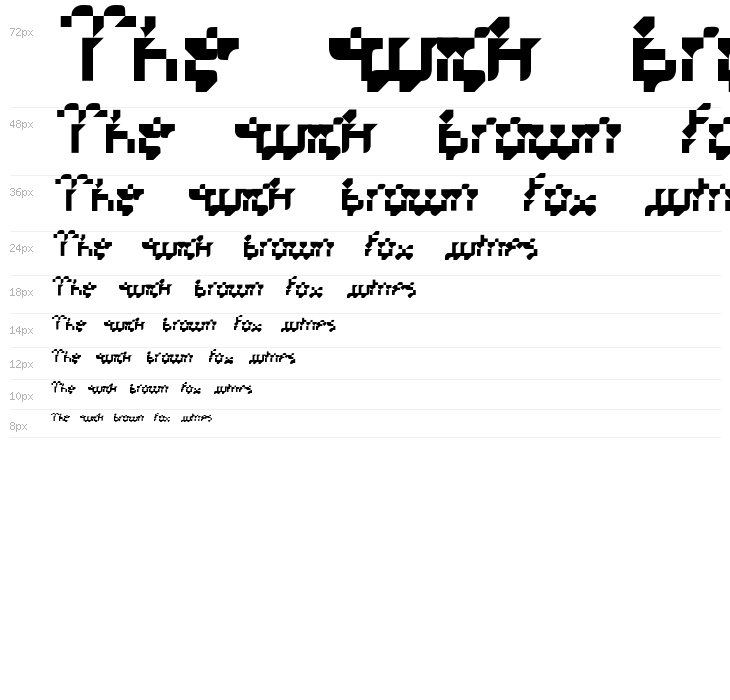 72px The quick Br
48px The quick Brown Fo
36px The quick Brown Fox jum
24px The quick Brown Fox jumps
18px The quick Brown Fox jumps
14px The quick Brown Fox jumps
12px The quick Brown Fox jumps
10px The quick Brown Fox jumps
8px The quick Brown Fox jumps